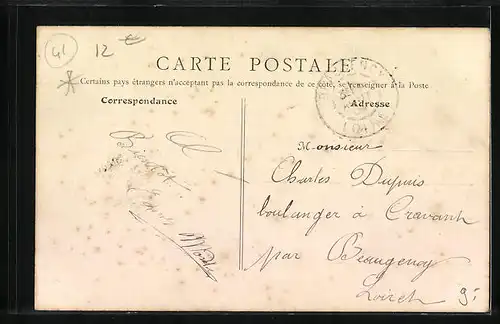 41
12 €
CARTE POSTALE
Certains pays étrangers n'acceptant pas la correspondance de ce côté, se renseigner à la Poste
Correspondance
Adresse
Monsieur
Charles Dupuis
boulanger à Cravant
par Beaugency
Loiret
9